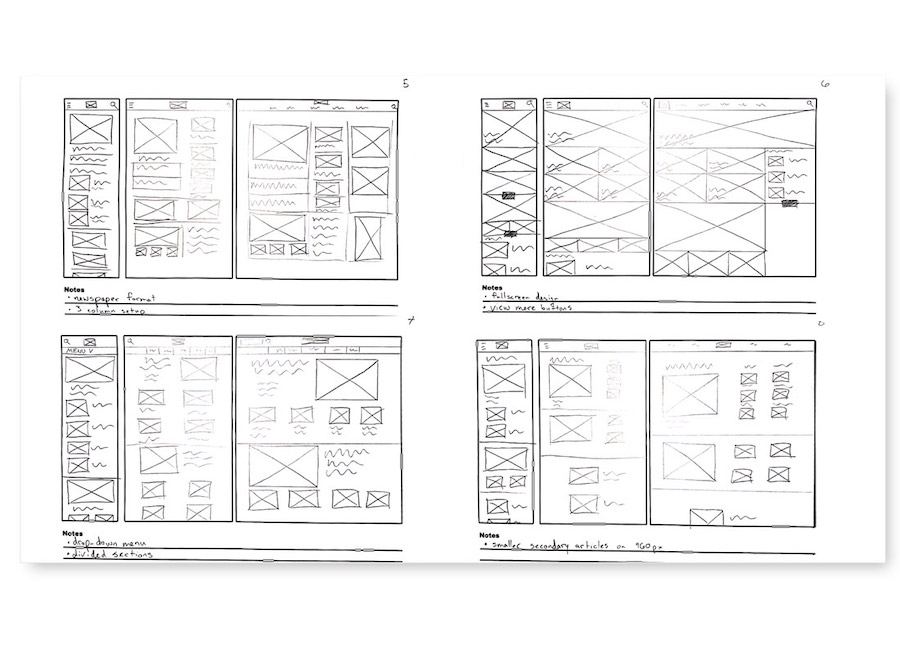 5
Notes
• newspaper format
• 3 column setup
6
Notes
• fullscreen design
• view more buttons
7
MENU V
Notes
• drop-down menu
• divided sections
Notes
• smaller secondary articles on 960px